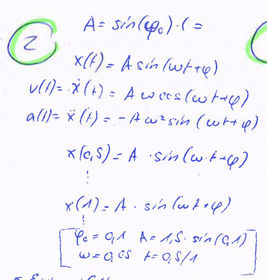 2
A = sin(φ₀) · ( =
x(t) = A sin(ωt+φ)
v(t) = ẋ(t) = A ω cos(ωt+φ)
a(t) = ẍ(t) = -Aω² sin(ωt+φ)
x(0,5) = A · sin(ω·t+φ)
⋮
x(1) = A · sin(ωt+φ)
φ₀ = 0,1 A = 1,5 · sin(0,1)
ω = 0,05 t = 0,5/1